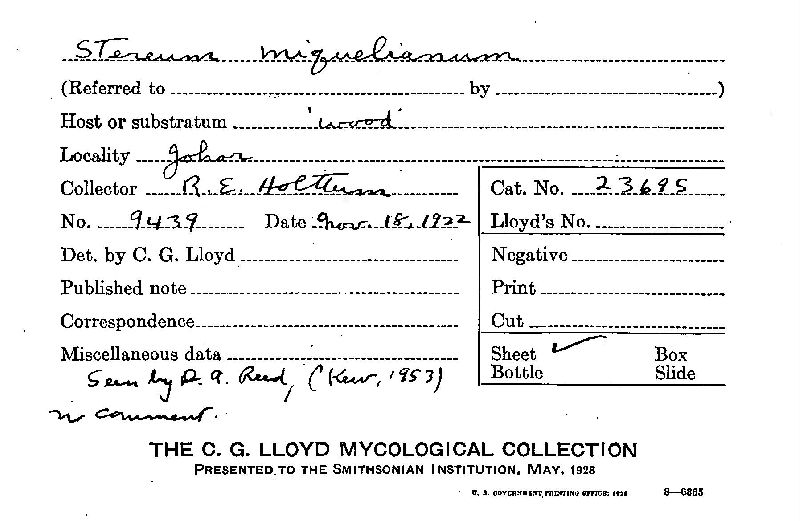 Stereum miquelianum
(Referred to by )
Host or substratum 'wood'
Locality Johor
Collector R. E. Holttum
Cat. No. 23695
No. 9439 Date Nov. 18, 1922
Lloyd's No.
Det. by C. G. Lloyd
Negative
Published note
Print
Correspondence
Cut
Miscellaneous data
Sheet ✓ Box
Bottle Slide
Seen by D. A. Reid, (Kew, 1953)
no comment.
THE C. G. LLOYD MYCOLOGICAL COLLECTION
PRESENTED TO THE SMITHSONIAN INSTITUTION, MAY, 1928
U. S. GOVERNMENT PRINTING OFFICE: 1928 8—6865